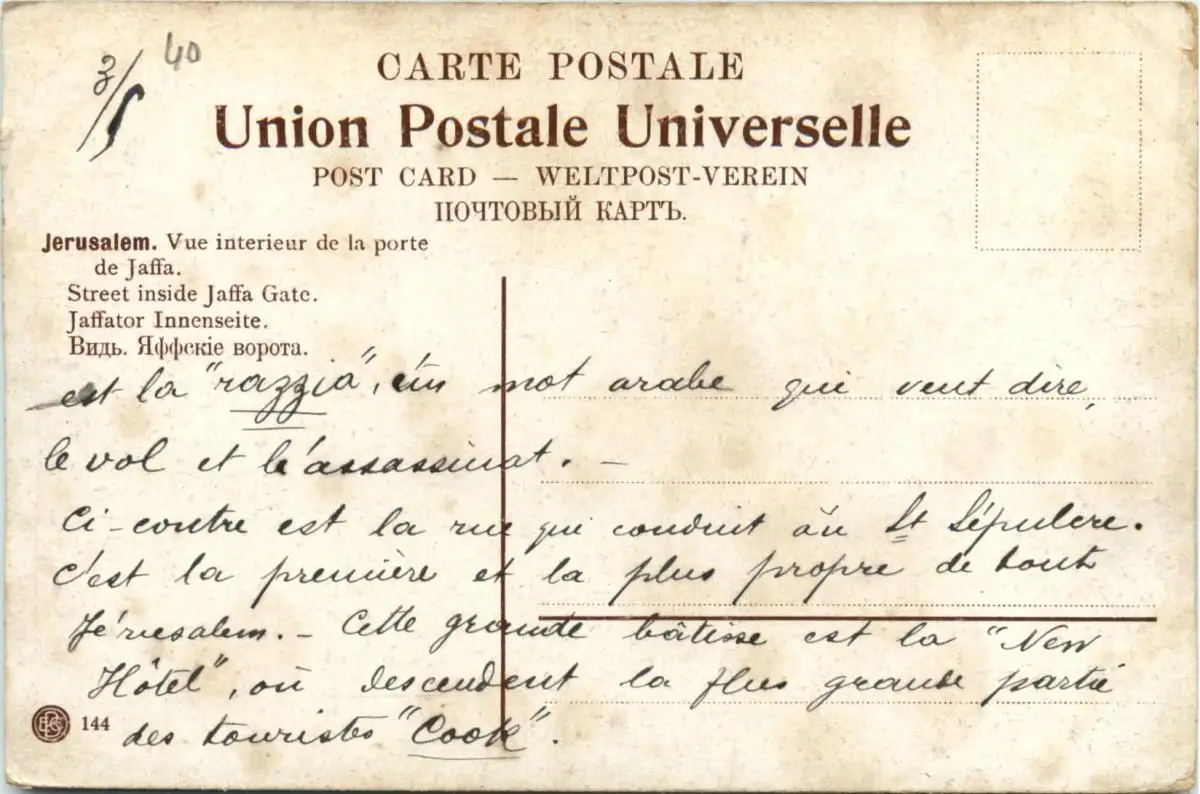 3/5 40
CARTE POSTALE
Union Postale Universelle
POST CARD — WELTPOST-VEREIN
ПОЧТОВЫЙ КАРТЪ.
Jerusalem. Vue interieur de la porte
de Jaffa.
Street inside Jaffa Gate.
Jaffator Innenseite.
Видь. Яффскіе ворота.
est la "razzia", un mot arabe qui veut dire,
le vol et le'assassinat. –
Ci-contre est la rue qui conduit au St Sépulcre.
C'est la première et la plus propre de tout
Jérusalem. – Cette grande bâtisse est la "New
Hôtel", où descendent la plus grande partie
des touristes "Cook".
144